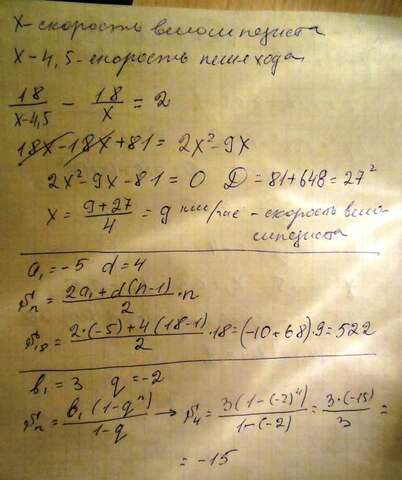 x - скорость велосипедиста
x - 4,5 - скорость пешехода
18/(x-4,5) - 18/x = 2
18x - 18x + 81 = 2x² - 9x
2x² - 9x - 81 = 0 D = 81 + 648 = 27²
x = (9+27)/4 = 9 км/час - скорость вело-
сипедиста
a₁ = -5 d = 4
Sₙ = (2a₁ + d(n-1))/2 · n
S₁₈ = (2·(-5) + 4(18-1))/2 · 18 = (-10 + 68)·9 = 522
b₁ = 3 q = -2
Sₙ = b₁(1-qⁿ)/(1-q) → S₄ = 3(1-(-2)⁴)/(1-(-2)) = 3·(-15)/3 =
= -15